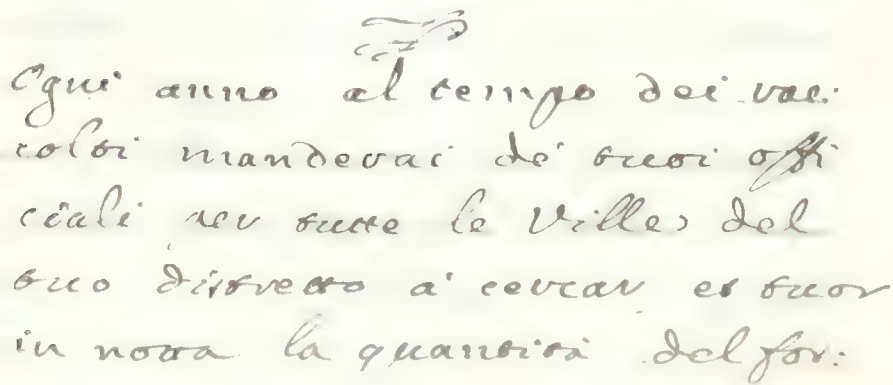 Ogni anno al tempo dei rac:
colti manderai de' tuoi offi
ciali per tutte le Ville del
tuo distretto a' cercar et tuor
in notta la quantità del for: